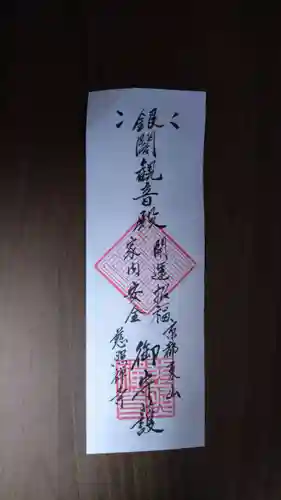 銀閣観音殿
開運招福
家内安全
京都東山
慈照禅寺
御守護